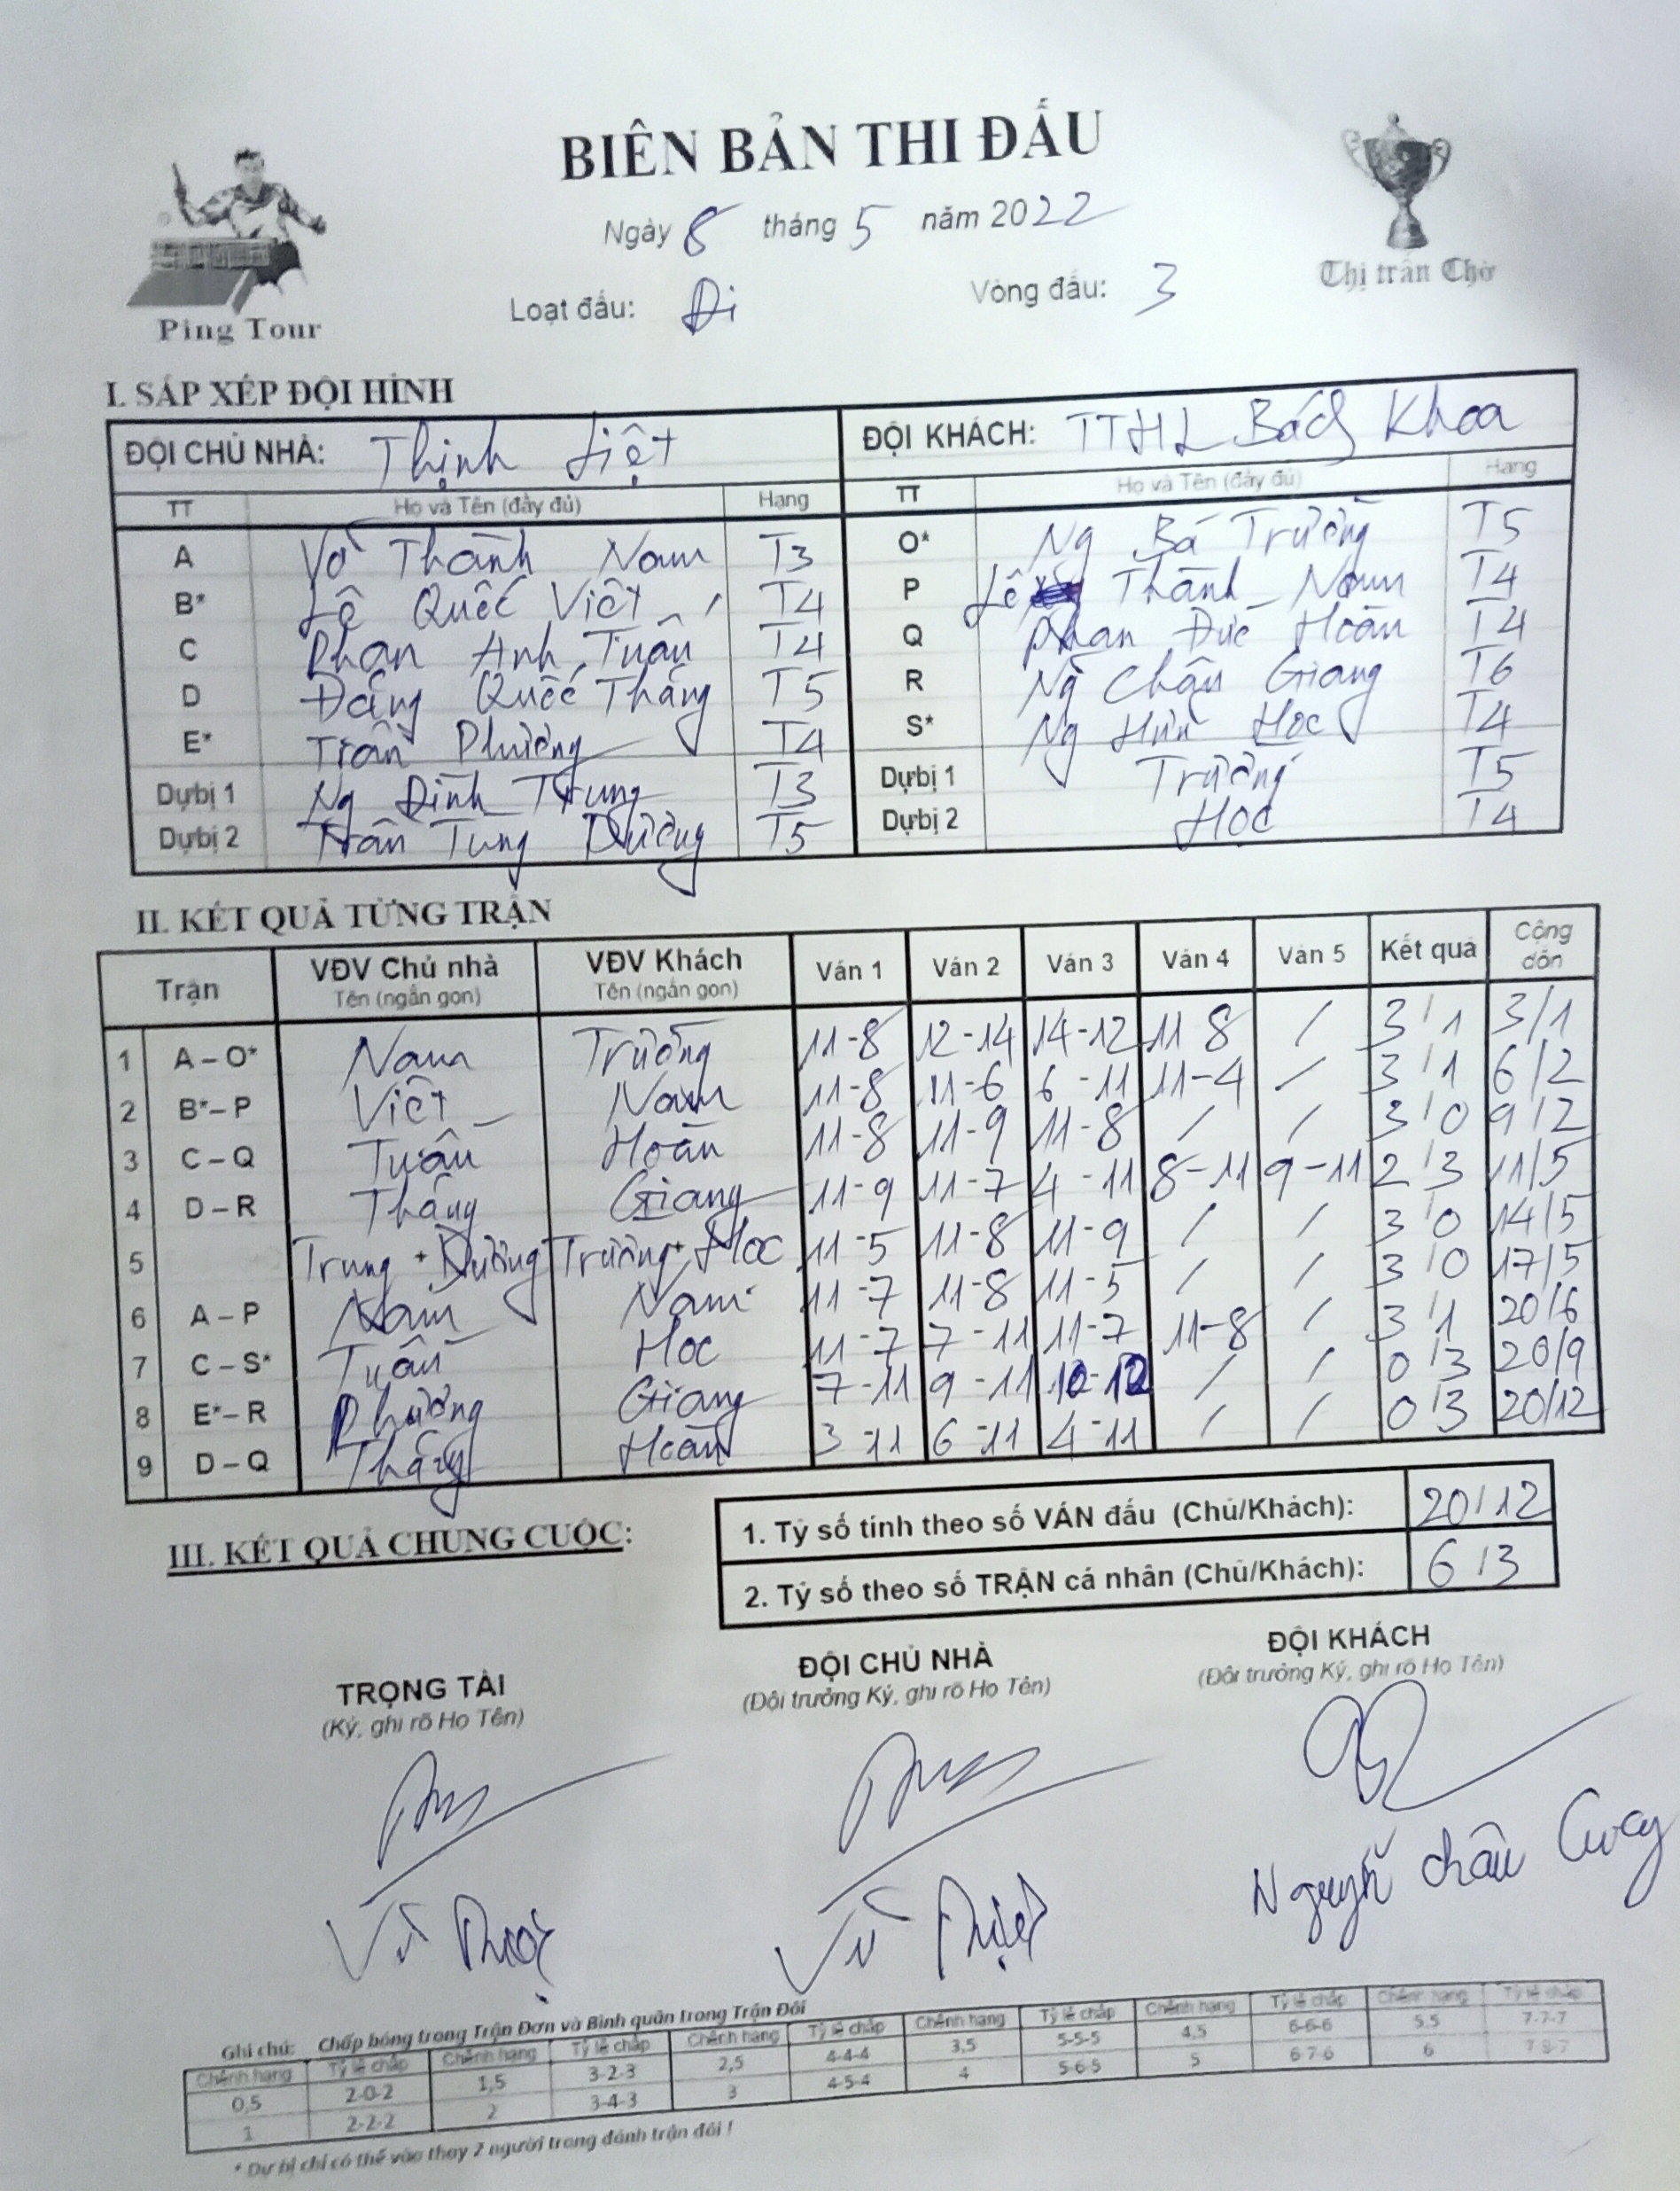 BIÊN BẢN THI ĐẤU
Ngày 8 tháng 5 năm 2022
Ping Tour
Thị trấn Chờ
Loạt đấu: Đi Vòng đấu: 3
I. SẮP XẾP ĐỘI HÌNH
ĐỘI CHỦ NHÀ: Thịnh Liệt ĐỘI KHÁCH: TTHL Bách Khoa
TT Họ và Tên (đầy đủ) Hạng TT Họ và Tên (đầy đủ) Hạng
A Võ Thành Nam T3 O* Ng Bá Trường T5
B* Lê Quốc Việt T4 P Lê Thành Nam T4
C Phan Anh Tuấn T4 Q Phan Đức Hoàn T4
D Đặng Quốc Thắng T5 R Ng Châu Giang T6
E* Trần Phương T4 S* Ng Hữu Học T4
Dự bị 1 Ng Đình Trung T3 Dự bị 1 Trường T5
Dự bị 2 Trần Tùng Dương T5 Dự bị 2 Học T4
II. KẾT QUẢ TỪNG TRẬN
Trận VĐV Chủ nhà VĐV Khách Ván 1 Ván 2 Ván 3 Ván 4 Ván 5 Kết quả Cộng dồn
Tên (ngắn gọn) Tên (ngắn gọn)
1 A – O* Nam Trường 11-8 12-14 14-12 11 8 / 3/1 3/1
2 B* – P Việt Nam 11-8 11-6 6-11 11-4 / 3/1 6/2
3 C – Q Tuấn Hoàn 11-8 11-9 11-8 / / 3/0 9/2
4 D – R Thắng Giang 11-9 11-7 4-11 8-11 9-11 2/3 11/5
5 Trung + Dương Trường + Học 11-5 11-8 11-9 / / 3/0 14/5
6 A – P Nam Nam 11-7 11-8 11-5 / / 3/0 17/5
7 C – S* Tuấn Học 11-7 7-11 11-7 11-8 / 3/1 20/6
8 E* – R Phương Giang 7-11 9-11 10-12 / / 0/3 20/9
9 D – Q Thắng Hoàn 3-11 6-11 4-11 / / 0/3 20/12
III. KẾT QUẢ CHUNG CUỘC:
1. Tỷ số tính theo số VÁN đấu (Chủ/Khách): 20/12
2. Tỷ số theo số TRẬN cá nhân (Chủ/Khách): 6/3
TRỌNG TÀI ĐỘI CHỦ NHÀ ĐỘI KHÁCH
(Ký, ghi rõ Họ Tên) (Đội trưởng Ký, ghi rõ Họ Tên) (Đội trưởng Ký, ghi rõ Họ Tên)
Vũ Vũ Nguyễn Châu
Ghi chú: Chấp bóng trong Trận Đơn và Bình quân trong Trận Đôi
Chênh hạng Tỷ lệ chấp Chênh hạng Tỷ lệ chấp Chênh hạng Tỷ lệ chấp Chênh hạng Tỷ lệ chấp Chênh hạng Tỷ lệ chấp Chênh hạng Tỷ lệ chấp
0,5 2-0-2 1,5 3-2-3 2,5 4-4-4 3,5 5-5-5 4,5 6-6-6 5,5 7-7-7
1 2-2-2 2 3-4-3 3 4-5-4 4 5-6-5 5 6-7-6 6 7-8-7
* Dự bị chỉ có thể vào thay 2 người trong đánh trận đôi !